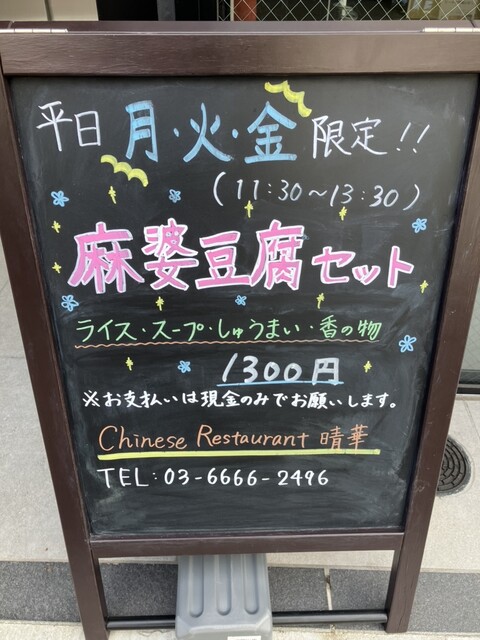 平日 月・火・金 限定!!
(11:30～13:30)
麻婆豆腐セット
ライス・スープ・しゅうまい・香の物
1300円
※お支払いは現金のみでお願いします。
Chinese Restaurant 晴華
TEL:03-6666-2496